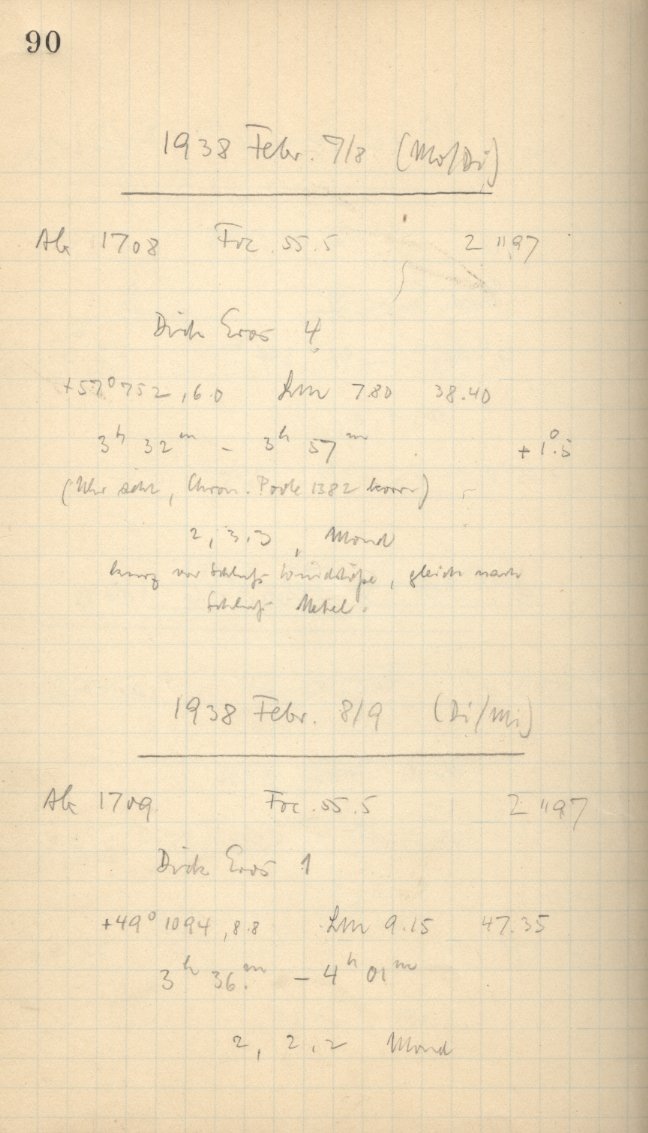 90
1938 Febr. 7/8 (Mo/Di)
1708 Foc. 55.5 2 "97
Dirk Eros 4
+57° 752, 6.0 Lm 7.80 38.40
3h 32m - 3h 57m . +1°.5
(Uhr steht, Chron. Poole 1382 korr.)
2, 3.3, Mond
kurz vor Schluß Windstöße, gleich nach
Schluß Nebel.
1938 Febr. 8/9 (Di/Mi)
1709 Foc. 55.5 2 "97
Dirk Eros 1
+49° 1094, 8.8 Lm 9.15 47.35
3h 36.m - 4h 01m
2, 2.2 Mond